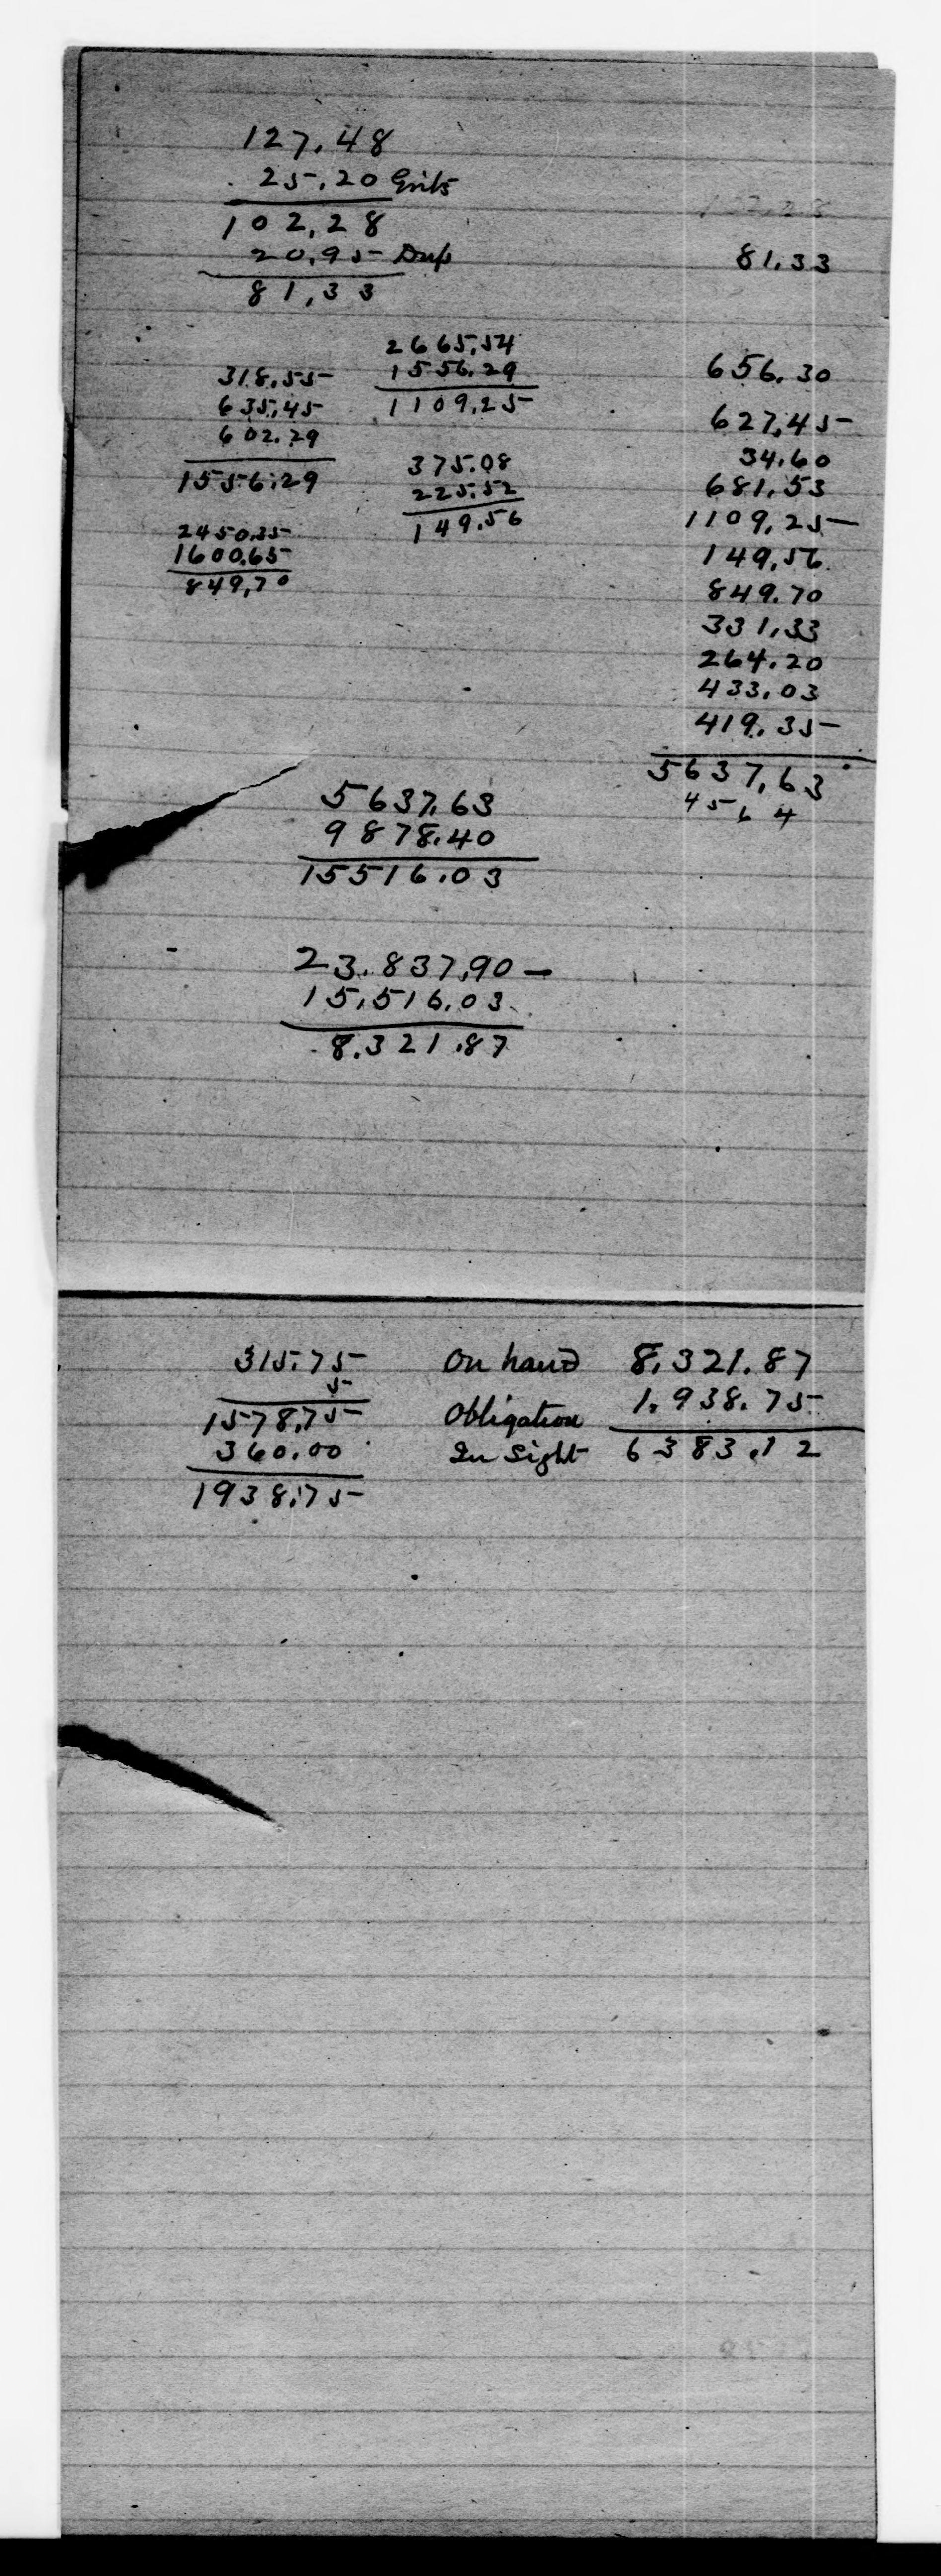 127.48
25.20
102.28
20.95 Dup
81.33
318.55
635.45
602.29
1556.29
2450.35
1600.65
849.70
2665.54
1556.29
1109.25
375.08
225.52
149.56
81.33
656.30
627.45
34.60
681.53
1109.25
149.56
849.70
331.33
264.20
433.03
419.35
5637.63
4 5 6 4
5637.63
9878.40
15516.03
23.837.90 —
15.516.03
8.321.87
315.75
5
1578.75
360.00
1938.75
On hand 8.321.87
Obligation 1.938.75
In Sight 6383.12